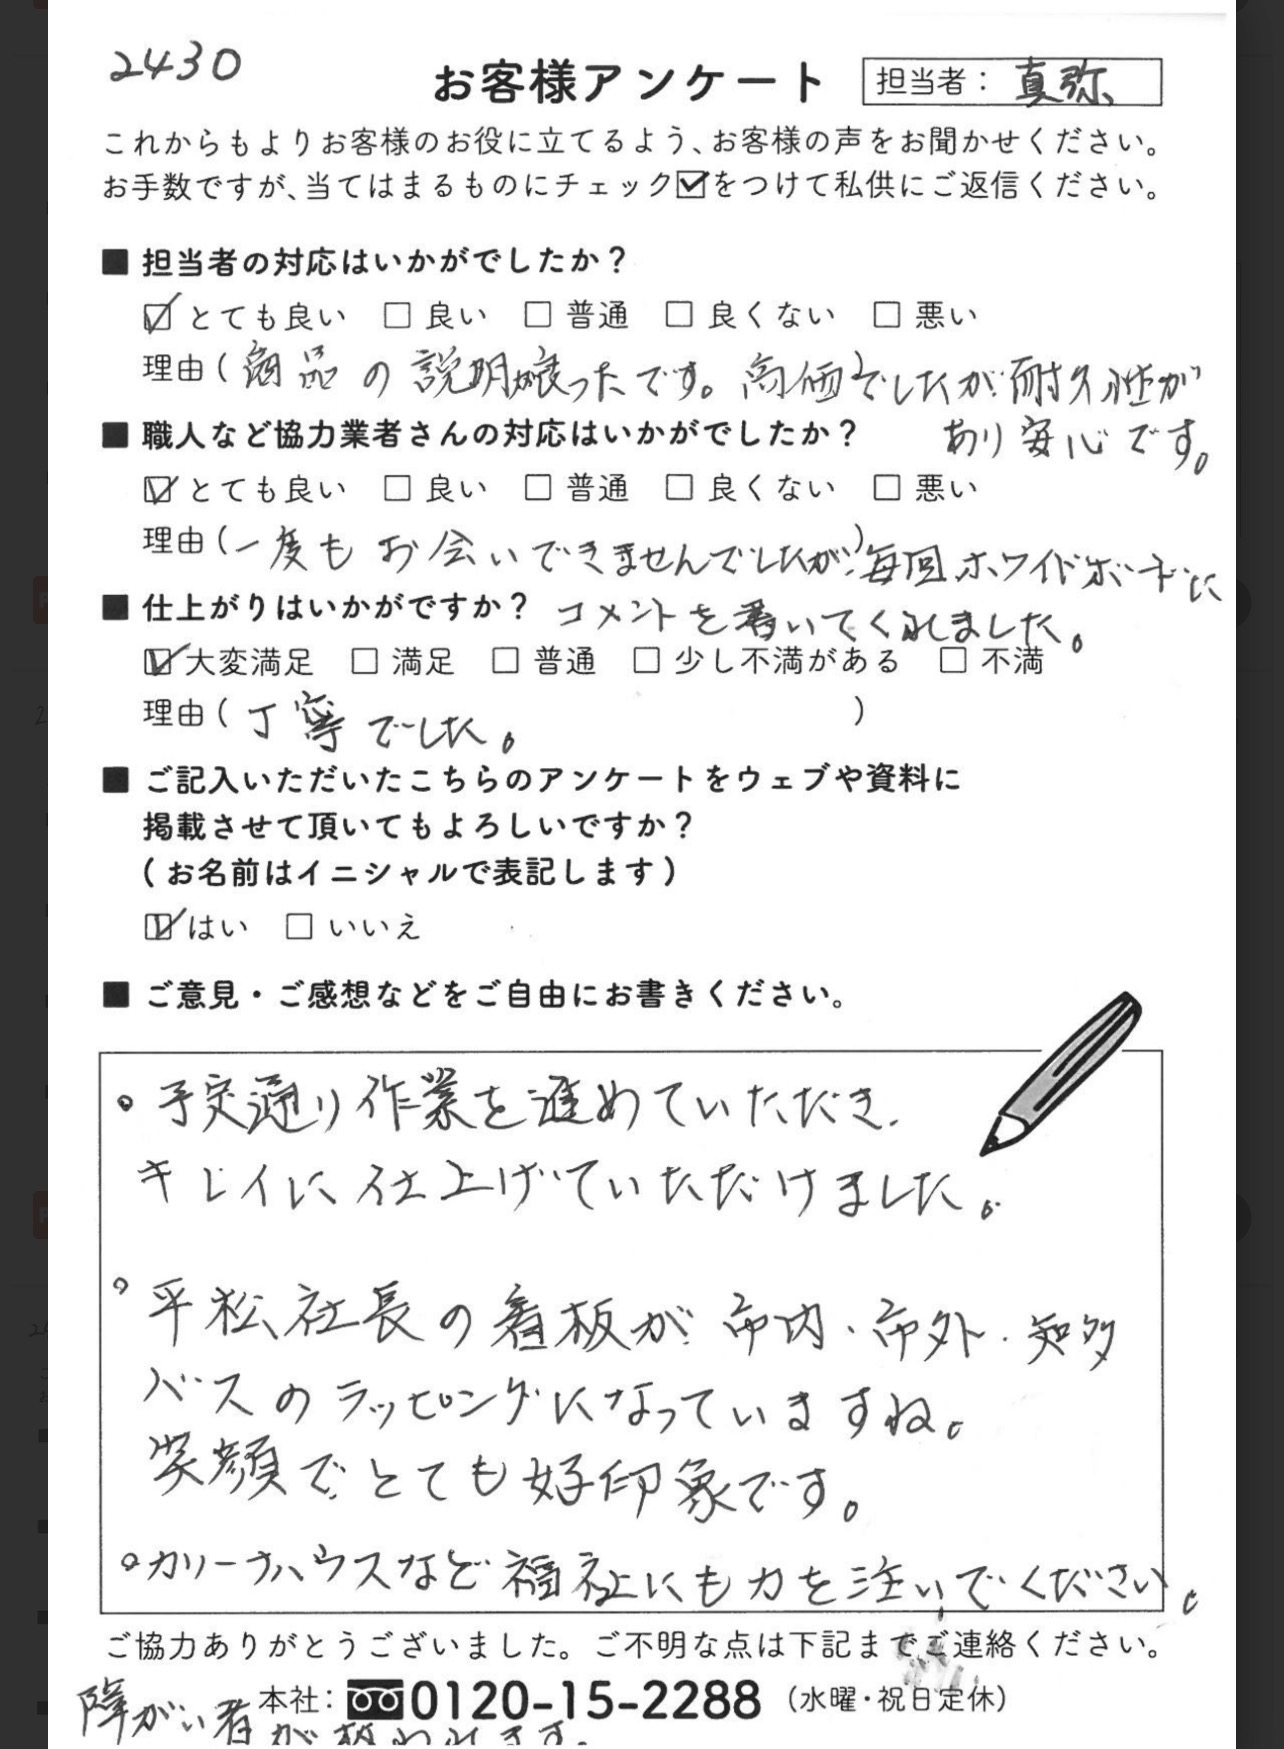 2430
お客様アンケート
担当者： 真弥
これからもよりお客様のお役に立てるよう、お客様の声をお聞かせください。
お手数ですが、当てはまるものにチェック☑をつけて私供にご返信ください。
■ 担当者の対応はいかがでしたか？
☑とても良い □ 良い □ 普通 □ 良くない □ 悪い
理由（商品の説明良ったです。高価でしたが耐久性が）
あり安心です。
■ 職人など協力業者さんの対応はいかがでしたか？
☑とても良い □ 良い □ 普通 □ 良くない □ 悪い
理由（一度もお会いできませんでしたが）毎回ホワイトボードに
コメントを書いてくれました。
■ 仕上がりはいかがですか？
☑大変満足 □ 満足 □ 普通 □ 少し不満がある □ 不満
理由（丁寧でした。）
■ ご記入いただいたこちらのアンケートをウェブや資料に
掲載させて頂いてもよろしいですか？
（お名前はイニシャルで表記します）
☑はい □ いいえ
■ ご意見・ご感想などをご自由にお書きください。
。予定通り作業を進めていただき、
キレイに仕上げていただけました。
。平松社長の看板が市内・市外・知多
バスのラッピングになっていますね。
笑顔でとても好印象です。
。カリーナハウスなど福祉にも力を注いでください。
ご協力ありがとうございました。ご不明な点は下記までご連絡ください。
本社： 0120-15-2288（水曜・祝日定休）
障がい者が救われます。